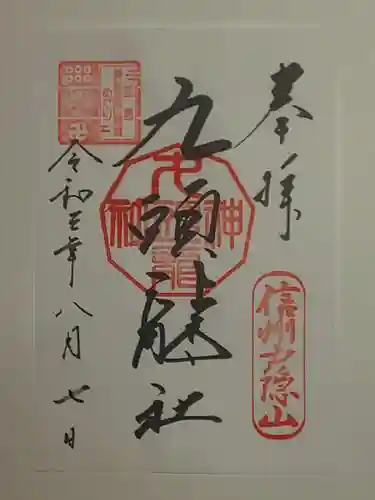 奉拝
信州戸隠山
九頭龍社
九頭龍神社
令和五年八月七日